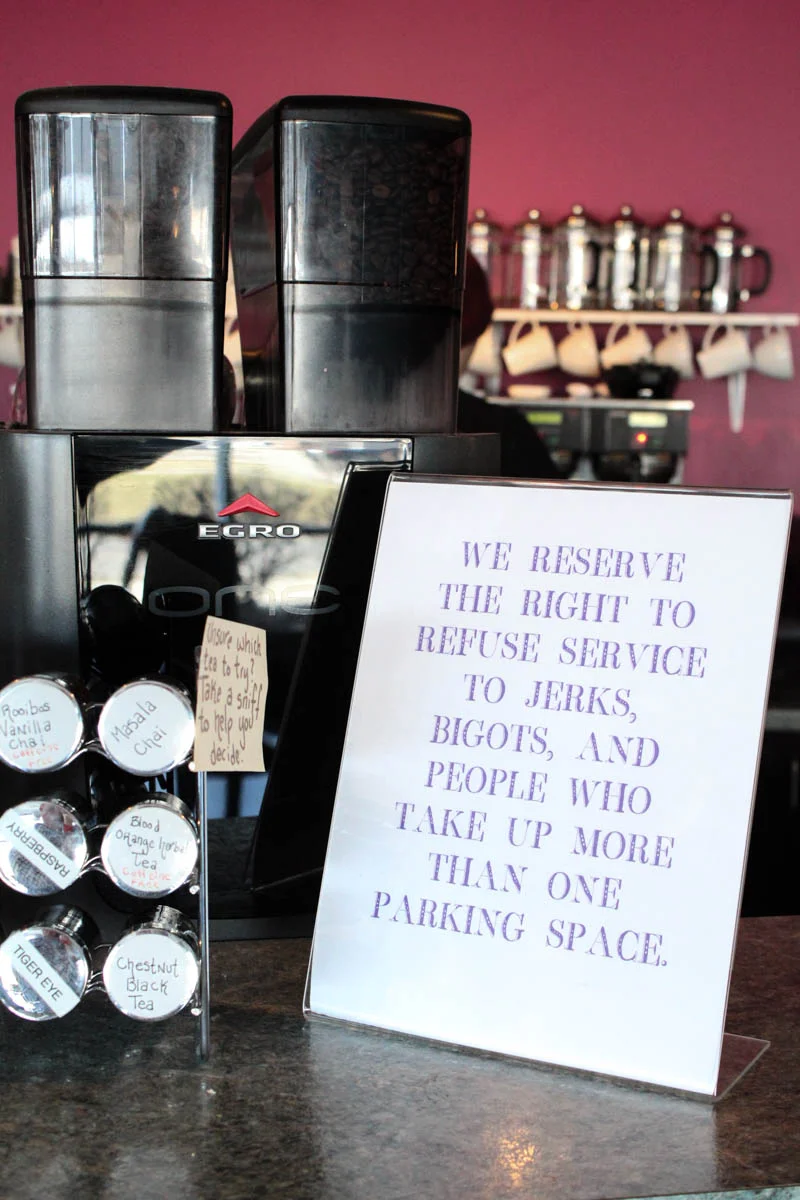 EGRO
WE RESERVE
THE RIGHT TO
REFUSE SERVICE
TO JERKS,
BIGOTS, AND
PEOPLE WHO
TAKE UP MORE
THAN ONE
PARKING SPACE.
Unsure which
tea to try?
Take a sniff
to help you
decide.
Rooibos
Vanilla
Chai
Caffeine
Free
Masala
Chai
RASPBERRY
Blood
Orange herbal
Tea
Caffeine
FREE
TIGER EYE
Chestnut
Black
Tea